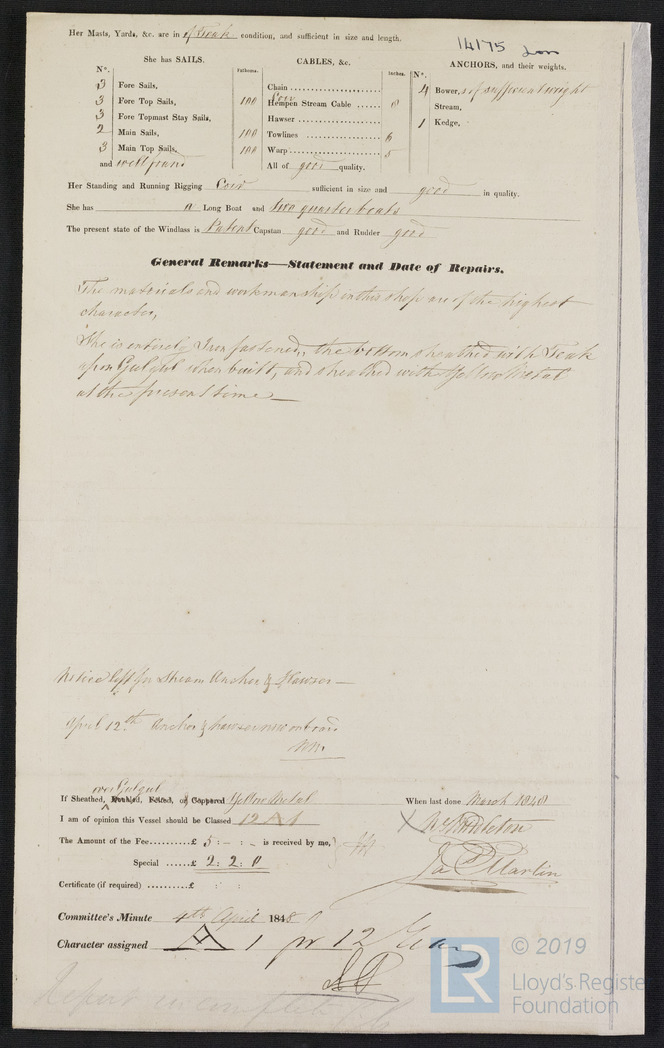 14175 Lon
Her Masts, Yards, &c. are in of Teak condition, and sufficient in size and length.
She has SAILS.
CABLES, &c.
ANCHORS, and their weights.
N°.
Fathoms.
Inches.
N°.
3 Fore Sails,
3 Fore Top Sails,
3 Fore Topmast Stay Sails,
2 Main Sails,
3 Main Top Sails,
and well found
Chain
Coir
100 Hempen Stream Cable 8
Hawser
100 Towlines 6
100 Warp 5
All of good quality.
4 Bower, of sufficient weight
Stream,
1 Kedge,
Her Standing and Running Rigging Coir sufficient in size and good in quality.
She has a Long Boat and two quarter boats
The present state of the Windlass is Patent Capstan good and Rudder good
General Remarks—Statement and Date of Repairs.
The materials and workmanship in this ship are of the highest
character,
She is entirely Iron fastened, the bottom sheathed with Teak
upon Gulgul when built, and sheathed with Yellow Metal
at the present time —
Notice left for Stream Anchor & Hawser —
April 12th Anchor & hawser now on board
over Gulgul
If Sheathed, Doubled, Felted, or Coppered Yellow Metal When last done March 1848
I am of opinion this Vessel should be Classed 12 A 1
The Amount of the Fee......£ 5 : - : - is received by me,
Special ......£ 2 : 2 : 0
Jas Martin
Certificate (if required) ..........£ : :
Committee's Minute 4th April 1848
Character assigned A 1 for 12 Years
Report incomplete
LR
© 2019
Lloyd's Registe
Foundation